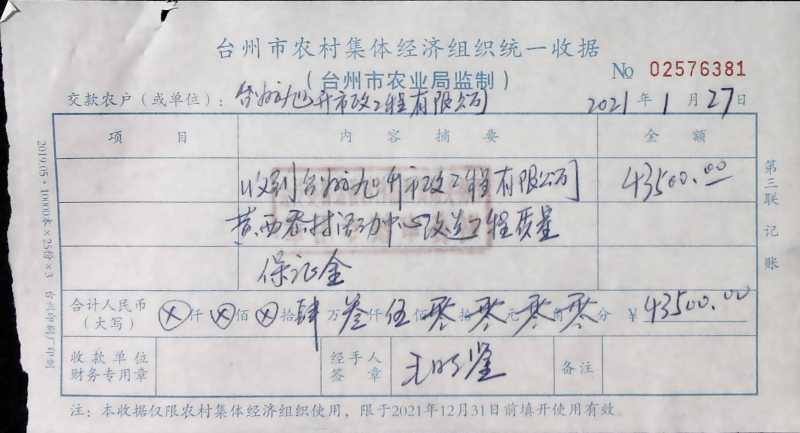 台州市农村集体经济组织统一收据
(台州市农业局监制)
No 02576381
交款农户(或单位):台州旭升市政工程有限公司 2021年1月27日
项目 内容摘要 金额
收到台州旭升市政工程有限公司 43500.00
黄西村活动中心改造工程质量
保证金
合计人民币(大写) ⊗仟⊗佰⊗拾肆万叁仟伍佰零拾零元零角零分 ¥43500.00
收款单位财务专用章 经手人签章 备注
注:本收据仅限农村集体经济组织使用,限于2021年12月31日前填开使用有效。
第三联 记账
2019.05·10000本×25份×3